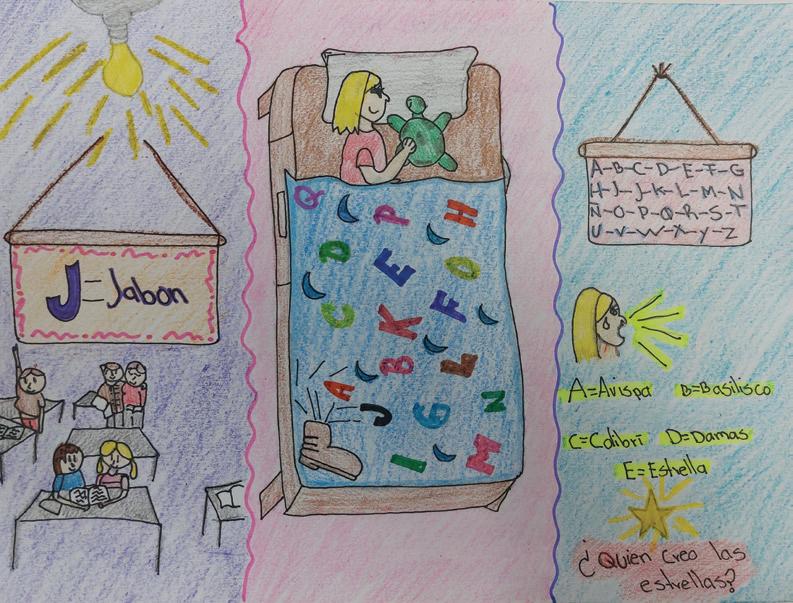 J=Jabon
Q P H
D E O
C K F
B L
A J G N
I M
A-B-C-D-E-F-G
H-I-J-K-L-M-N
Ñ-O-P-Q-R-S-T
U-V-W-X-Y-Z
A=Avispa B=Basilisco
C=Colibrí D=Damas
E=Estrella
¿Quien creo las
estrellas?